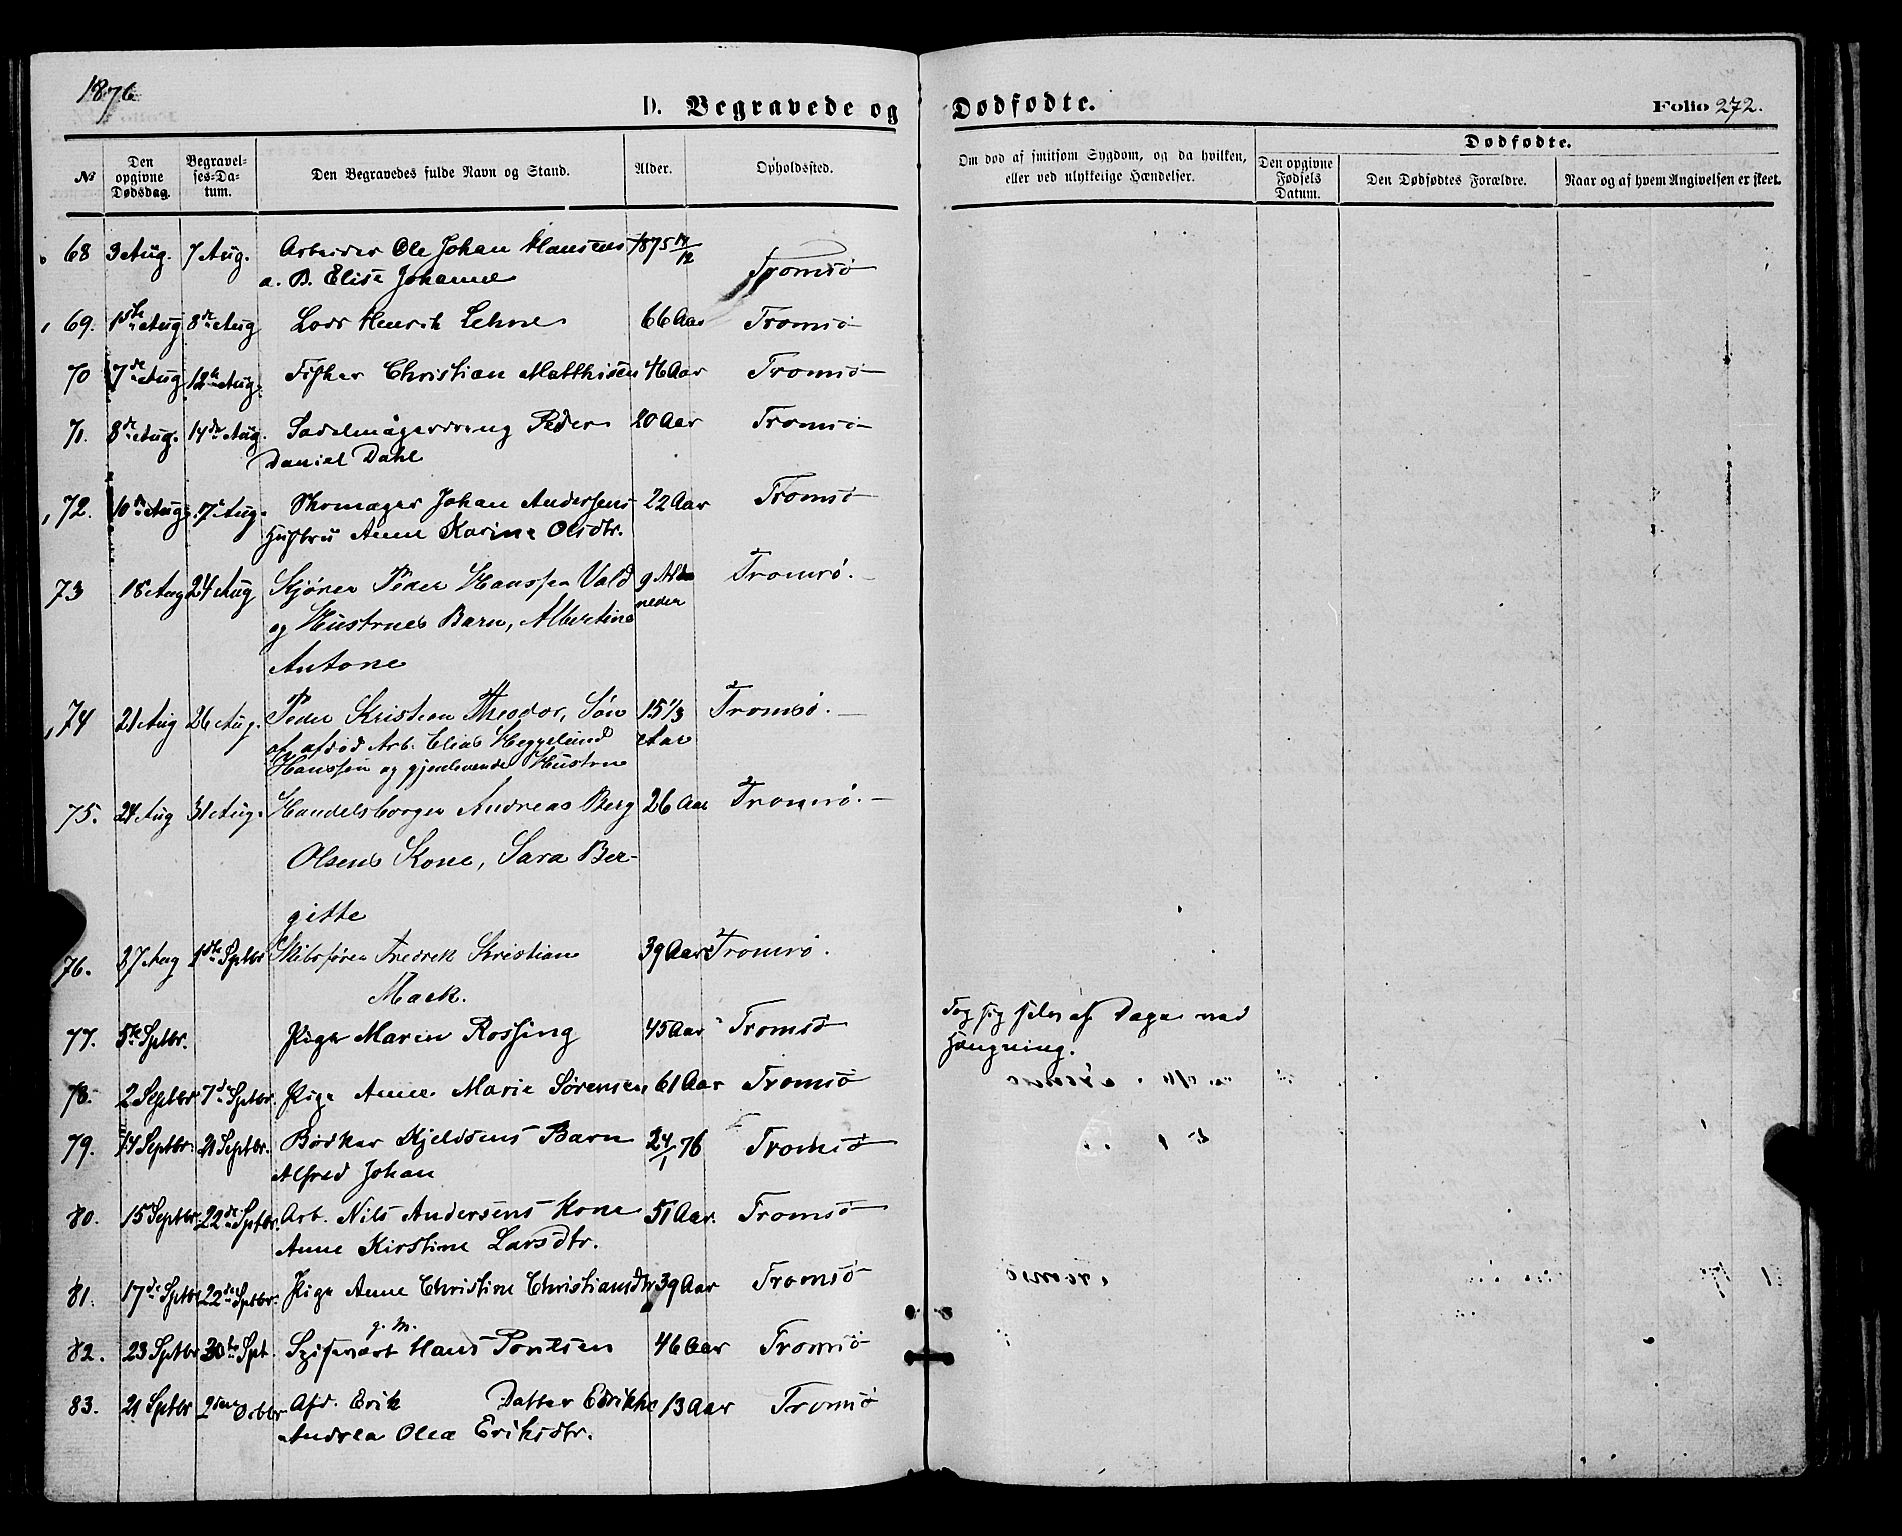 1876
D. Begravede og Dødfødte.
Folio 272.
No
Den opgivne Dødsdag.
Begravelses-Datum.
Den Begravedes fulde Navn og Stand.
Alder.
Opholdssted.
Om død af smitsom Sygdom, og da hvilken, eller ved ulykkelige Hændelser.
Dødfødte.
Den opgivne Fødsels Datum.
Den Dødfødtes Forældre.
Naar og af hvem Angivelsen er skeet.
68 3 Aug. 7 Aug. Arbeider Ole Johan Hansens 1875 /12 Tromsø
a. B. Elise Johanne
69. 1ste Aug 8de Aug Lods Henrik Lehne 66 Aar Tromsø
70 7de Aug 12te Aug. Fisker Christian Matthisen 46 Aar Tromsø
71. 8de Aug. 14de Aug. Sadelmagerdreng Peder 20 Aar Tromsø
Daniel Dahl
72. 10de Aug. 17 Aug. Skomager Johan Andersens 22 Aar Tromsø
Husfru Anne Karine Olsdtr.
73 18 Aug 24 Aug Skjöner Peder Hanssen Vald 9 Maa Tromsø.
og Hustrues Barn, Albertine neder
Antone
74 21 Aug 26 Aug. Peder Kristian Theodor, Søn 15 1/3 Tromsø.
af afdød Arb. Elias Heggelund Aar
Hanssen og gjenlevende Hustrue
75. 24 Aug 31 Aug. Handelsborger Andreas Berg 26 Aar Tromsø.
Olsens Kone, Sara Ber-
gitte
76. 27 Aug 1ste Sptbr Skibsfører Fredrik Kristian 39 Aar Tromsø.
Mack.
77. 5te Sptbr. Pige Maren Rossing 45 Aar Tromsø Tog sig selv af Dage ved
Hængning.
78. 2 Septbr 7de Sptbr. Pige Anne Marie Sørensen 61 Aar Tromsø
79. 14 Septbr. 21 Septbr. Bødker Kjeldsens Barn 24/1 76 Tromsø
Alfred Johan
80. 15 Septbr. 22de Sptbr. Arb. Nils Andersens Kone 51 Aar. Tromsø
Anne Kirstine Larsdtr.
81. 17de Sptbr 22de Sptbr. Pige Anne Christine Christiansdtr 39 Aar Tromsø
g. M.
82. 23 Sptbr 30te Spt. Hans Poulsen 46 Aar Tromsø
83. 21 Sptbr 2den Octbr Afd. Erik Datter Edrikke 13 Aar Tromsø
Andrea Olea Eriksdtr.